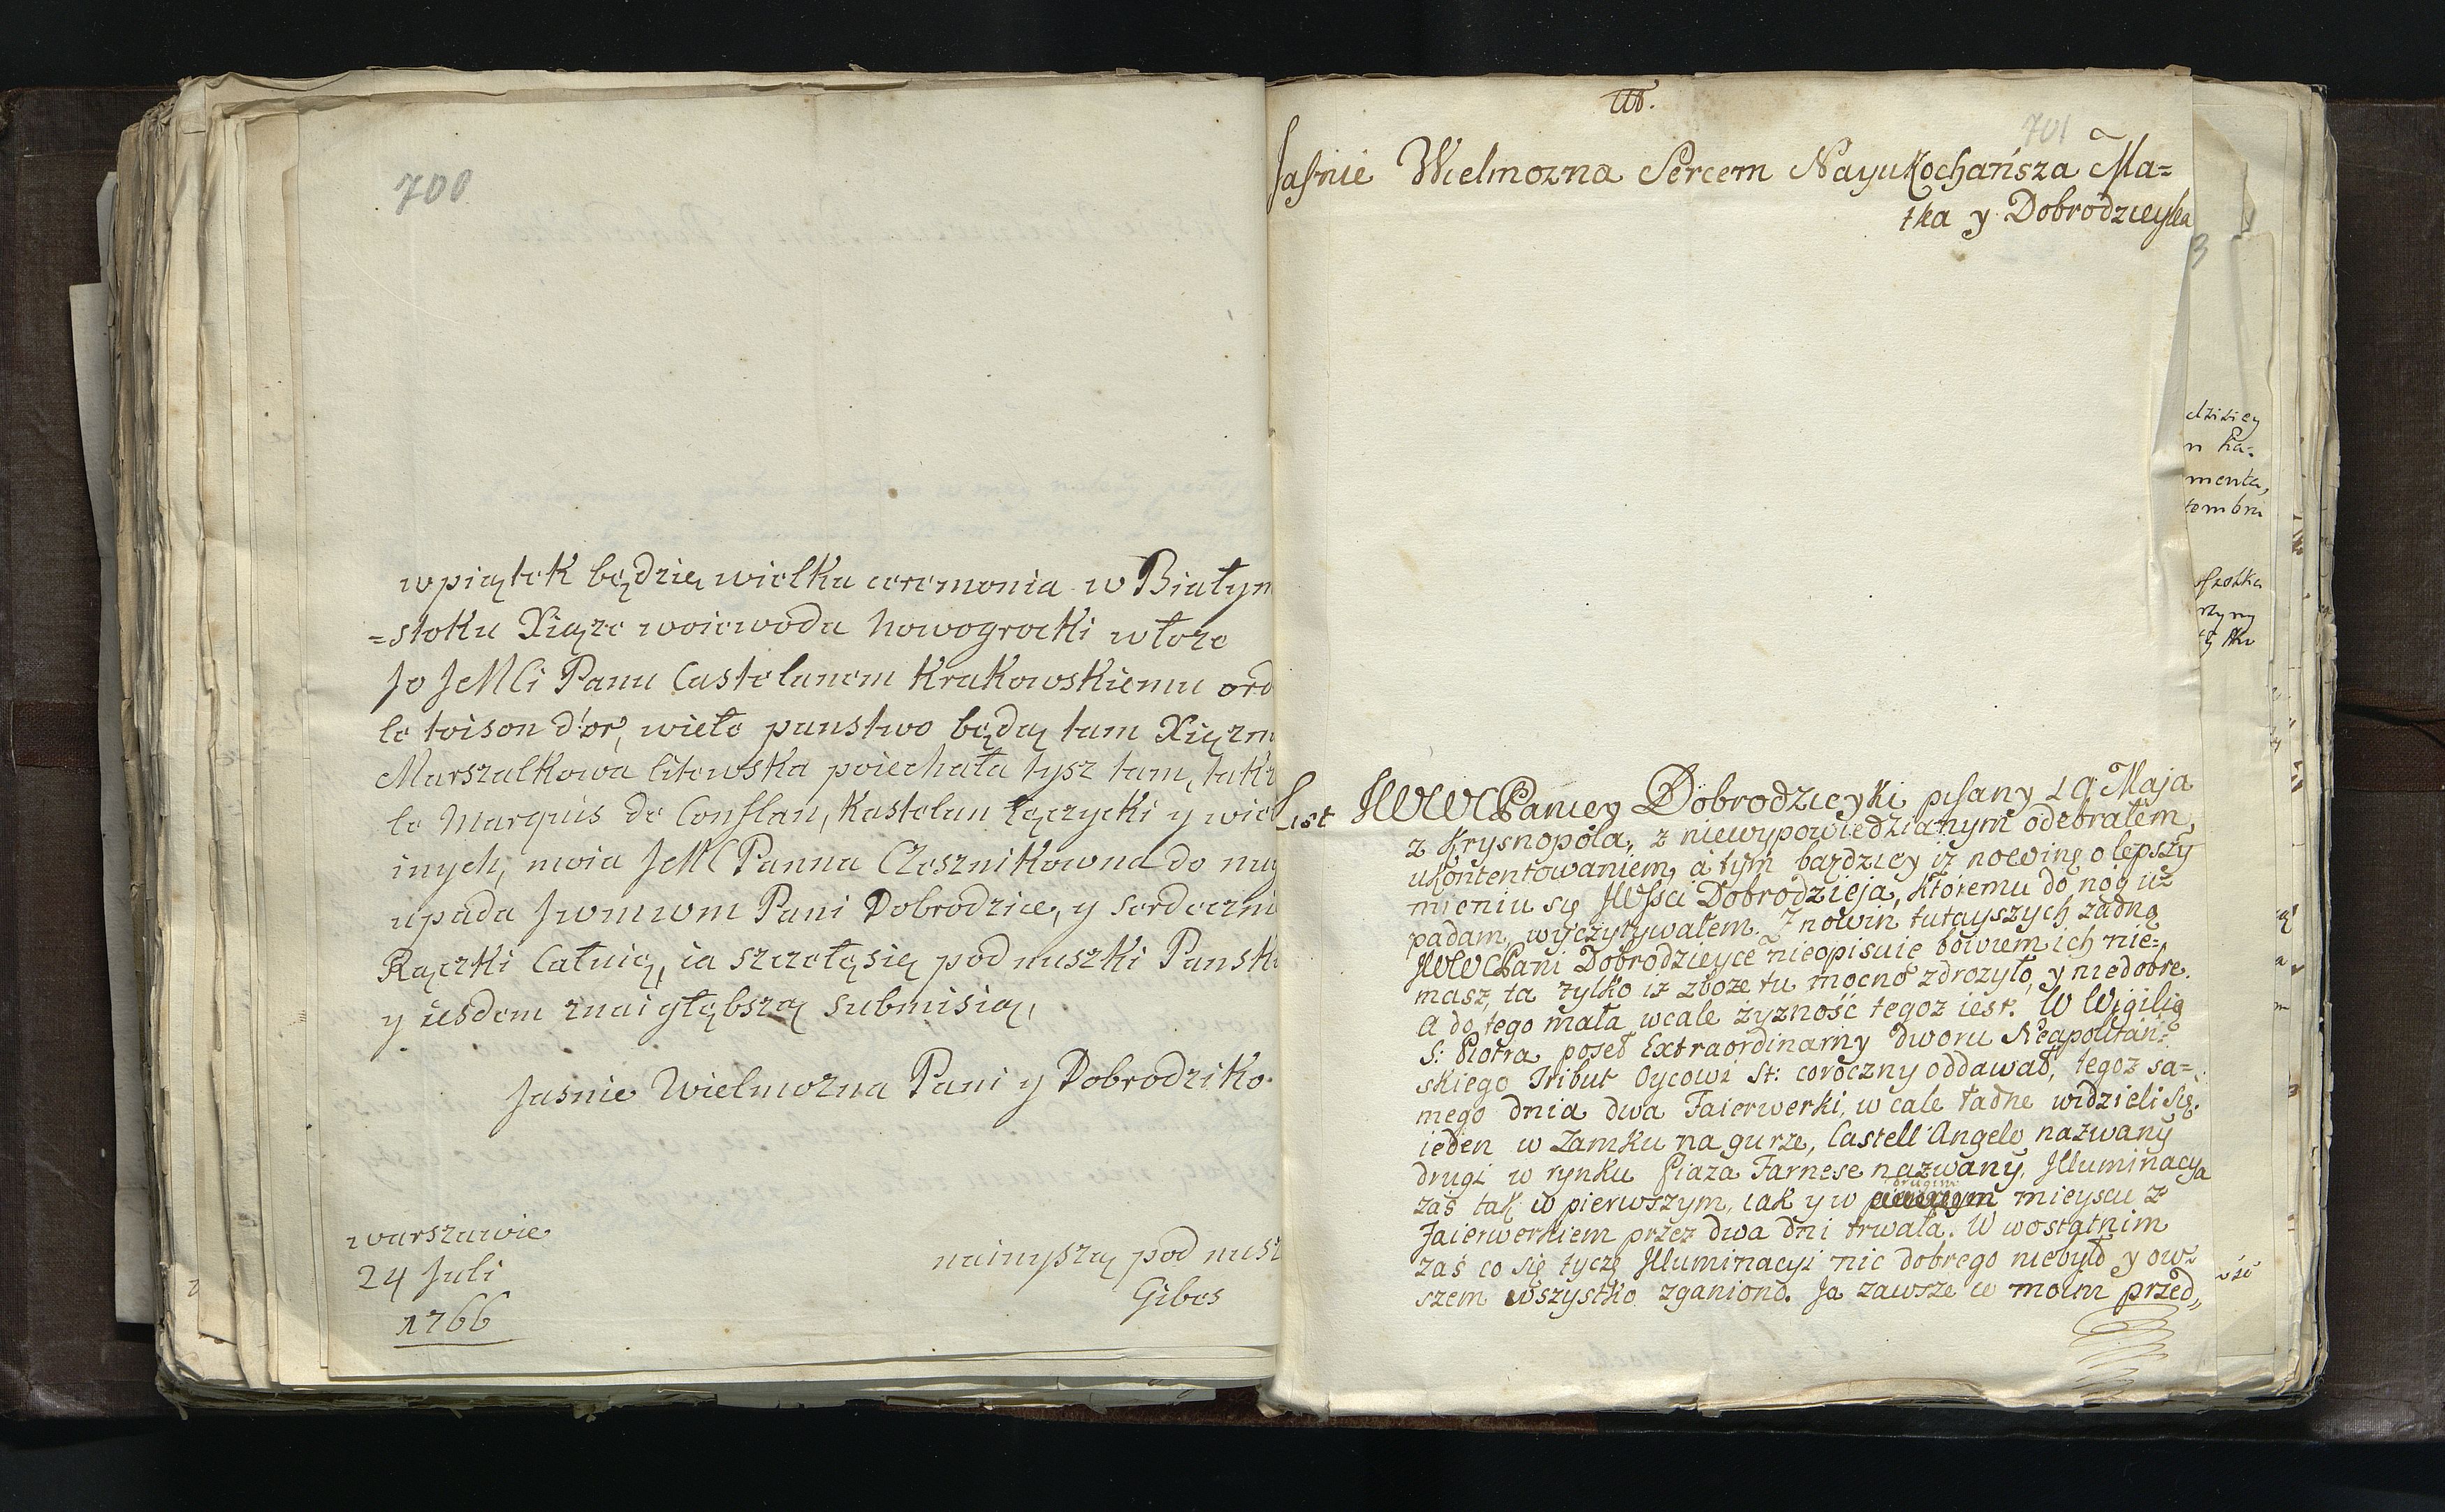 700
wpiątek będzie wielka ceremonia w Białym
=stoku Xiąże woiewoda nowogrocki włoze
Jo JeMCi Panu Castelanem Krakowskiemu ord
le toison d'or, wiele panstwo będą tam Xiązna
Marszalkowa litewska poiechała tysz tam, takze
le Marquis de Conflan, Kastelan Łęczycki y wiel
inych, moia JeM Panna Czesznikowna do nug
upada Jwmwm Pani Dobrodzice, y serdeczni
Rączki Całuię, ia szczelę się pod nuszki Panski
y iesdem znaigłębszą submisią,
Jasnie Wielmozna Pani y Dobrodziko
warszawie
24 Juli
1766
nainyszą pod nusz
Gibes
701
Jaśnie Wielmozna Sercem Nayukochańsza Ma=
tka y Dobrodzieyka
3
List JWWCPaniey Dobrodzieyki pisany 19 Maja
z Krysnopola, z niewypowiedzianym odebrałem,
ukontentowaniem, a tym bardziey iż nowinę o lepszy
mieniu się JWJsci Dobrodzieja, któremu do nóg u=
padam, wyczytywałem. Z nowin tutayszych żadną
JWWCPani Dobrodzieyce nieopisuie bowiem ich nie=
masz, ta tylko iż zboze tu mocno zdrozyło, y niedobre.
A do tego mała wcale żyzność tegoz iest. W Wigilią
S: Piotra poseł Extraordinarny dworu Neapolitań=
skiego Tribut Oycowi St: coroczny oddawał, tegoz sa=
mego dnia dwa Faierwerki, wcale ładne widzieli się.
ieden w Zamku na gurze, Castell Angelo nazwany
drugi w rynku Piaza Farnese nazwany, Illuminacya
zaś tak w pierwszym, iak y w drugim mieyscu z
Faierwerkiem przez dwa dni trwała. W wostatnim
zaś co się tycze Illuminacyi nic dobrego niebyło y ow=
szem wszystko zganiono. Ja zawsze w moim przed„
dzisiey
n Ka=
menta,